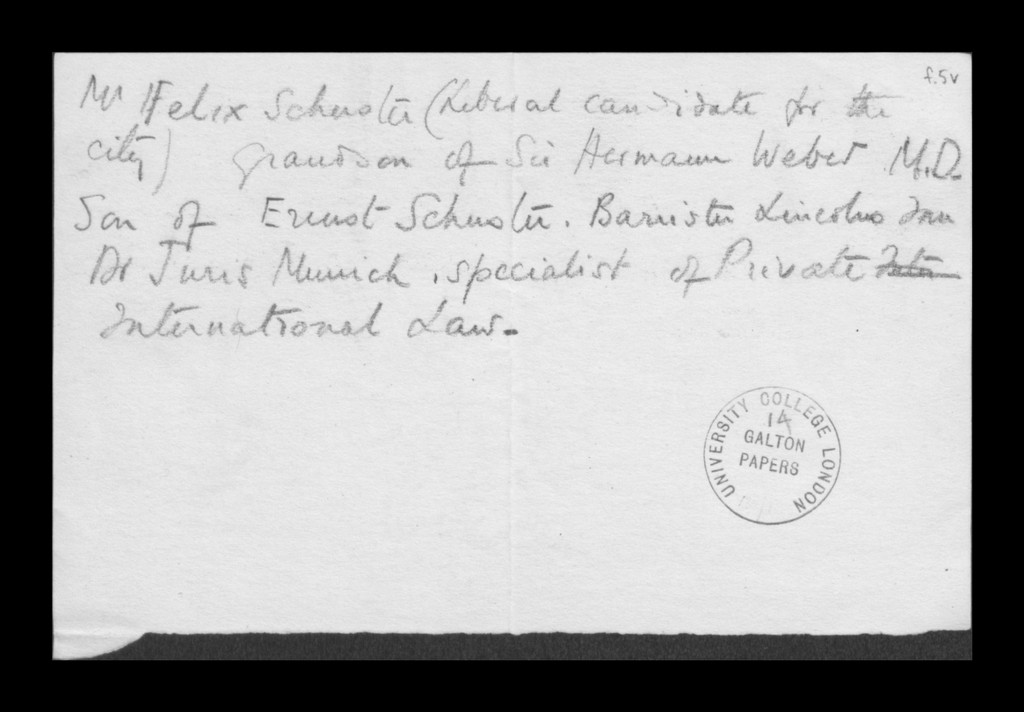 f.5v
Mr Felix Schuster (Liberal candidate for the
city) grandson of Sir Hermann Weber M.D.
Son of Ernst Schuster. Barrister Lincolns Inn
Dr Juris Munich, specialist of Private
International Law.
UNIVERSITY COLLEGE LONDON
14
GALTON
PAPERS